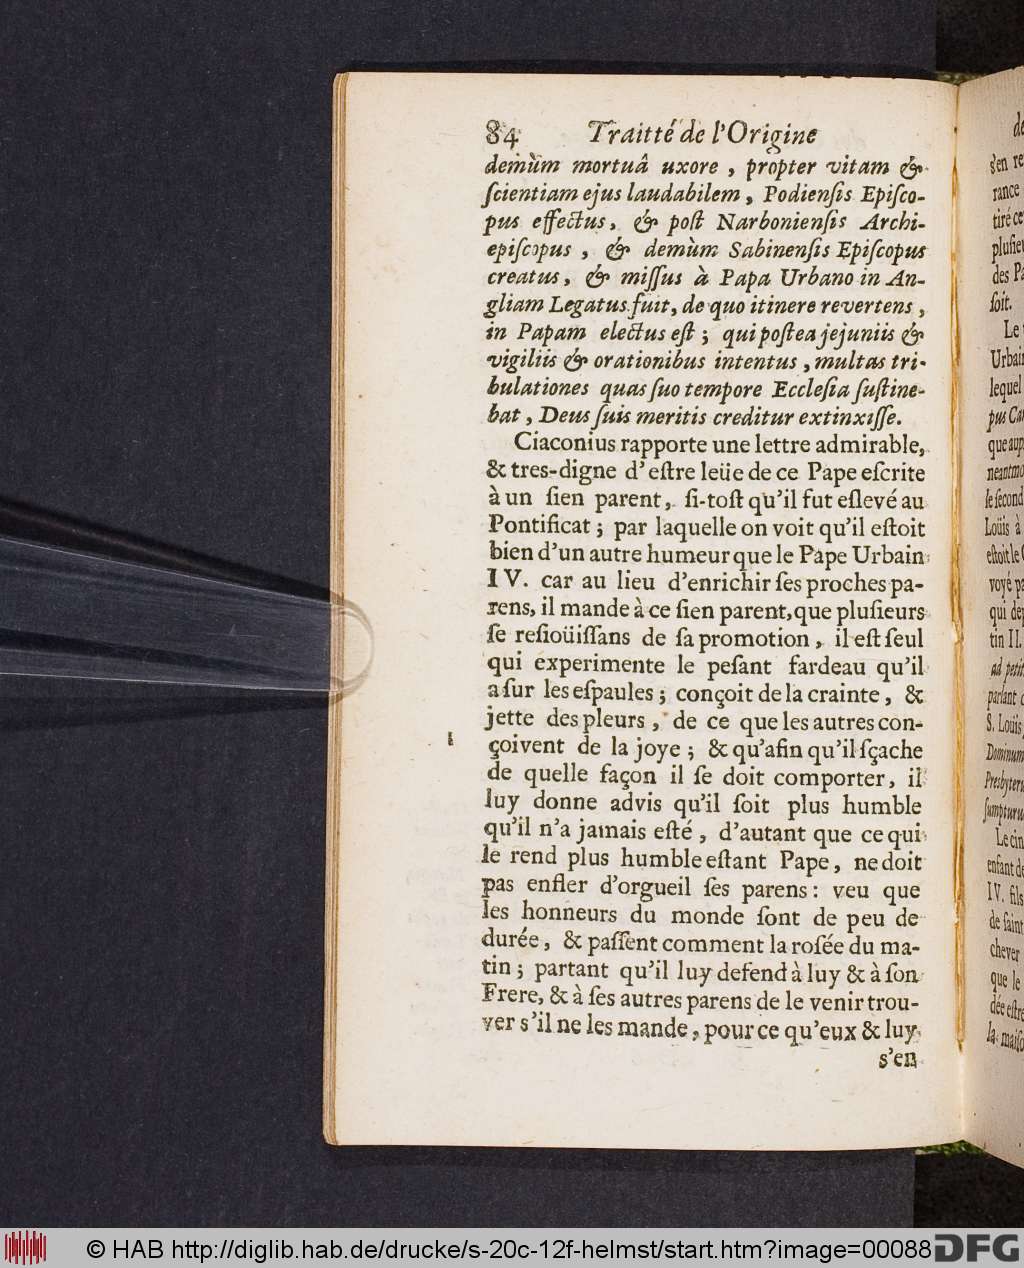 84 Traitté de l'Origine
demùm mortuâ uxore, propter vitam &
ſcientiam ejus laudabilem, Podienſis Epiſco-
pus effectus, & poſt Narbonienſis Archi-
epiſcopus, & demùm Sabinenſis Epiſcopus
creatus, & miſſus à Papa Urbano in An-
gliam Legatus fuit, de quo itinere revertens,
in Papam electus eſt; qui poſtea jejuniis &
vigiliis & orationibus intentus, multas tri-
bulationes quas ſuo tempore Eccleſia ſuſtine-
bat, Deus ſuis meritis creditur extinxiſſe.
Ciaconius rapporte une lettre admirable,
& tres-digne d'eſtre leüe de ce Pape eſcrite
à un ſien parent, ſi-toſt qu'il fut eſlevé au
Pontificat; par laquelle on voit qu'il eſtoit
bien d'un autre humeur que le Pape Urbain
IV. car au lieu d'enrichir ſes proches pa-
rens, il mande à ce ſien parent, que pluſieurs
ſe reſioüiſſans de ſa promotion, il eſt ſeul
qui experimente le peſant fardeau qu'il
a ſur les eſpaules; conçoit de la crainte, &
jette des pleurs, de ce que les autres con-
çoivent de la joye; & qu'afin qu'il ſçache
de quelle façon il ſe doit comporter, il
luy donne advis qu'il ſoit plus humble
qu'il n'a jamais eſté, d'autant que ce qui
le rend plus humble eſtant Pape, ne doit
pas enfler d'orgueil ſes parens: veu que
les honneurs du monde ſont de peu de
durée, & paſſent comment la roſée du ma-
tin; partant qu'il luy defend à luy & à ſon
Frere, & à ſes autres parens de le venir trou-
ver s'il ne les mande, pour ce qu'eux & luy
s'en
s'en re
rance
tiré ce
pluſieu
des Pa
ſoit.
Urbain
lequel
pus Car
que aup
neantmo
ſe ſecond
Loüis à
eſtoit le
voyé pa
qui dep
tin II.
ad petit
parlant
S. Loüis
Dominum
Presbyteru
ſumpturu
Le cin
enfant de
IV. fils
de ſaint
chever
que le
dée eſtre
la maiſo
© HAB http://diglib.hab.de/drucke/s-20c-12f-helmst/start.htm?image=00088 DFG